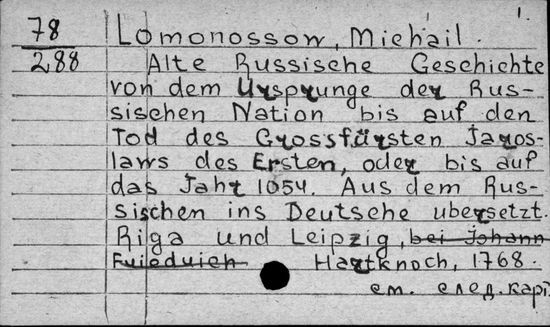 1.
78 Lomonossow, Michail.
288 Alte Russische Geschichte
von dem Ursprunge der Rus-
sischen Nation bis auf den
Tod des Grossfürsten Jaros-
laws des Ersten, oder bis auf
das Jahr 1054. Aus dem Rus-
sischen ins Deutsche ubersetzt.
Riga und Leipzig, bei Johann
Friedrich Hartknoch, 1768.
см. след. карт.